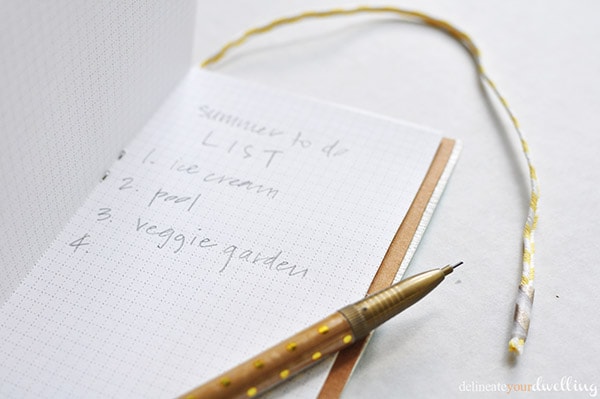 summer to do
LIST
1. ice cream
2. pool
3. veggie garden
4.
delineateyourdwelling